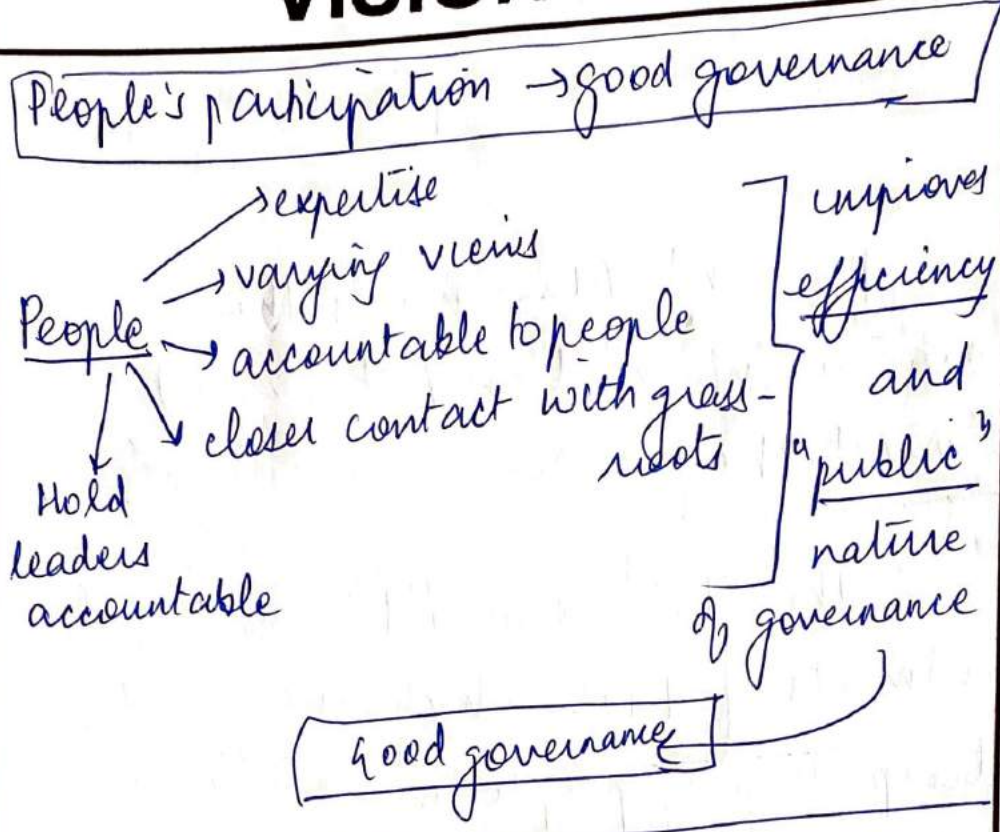 People's participation → good governance
→ expertise
→ varying views
People → accountable to people
→ closer contact with grass-
roots
Hold
leaders
accountable
improves
efficiency
and
"public"
nature
of governance
Good governance